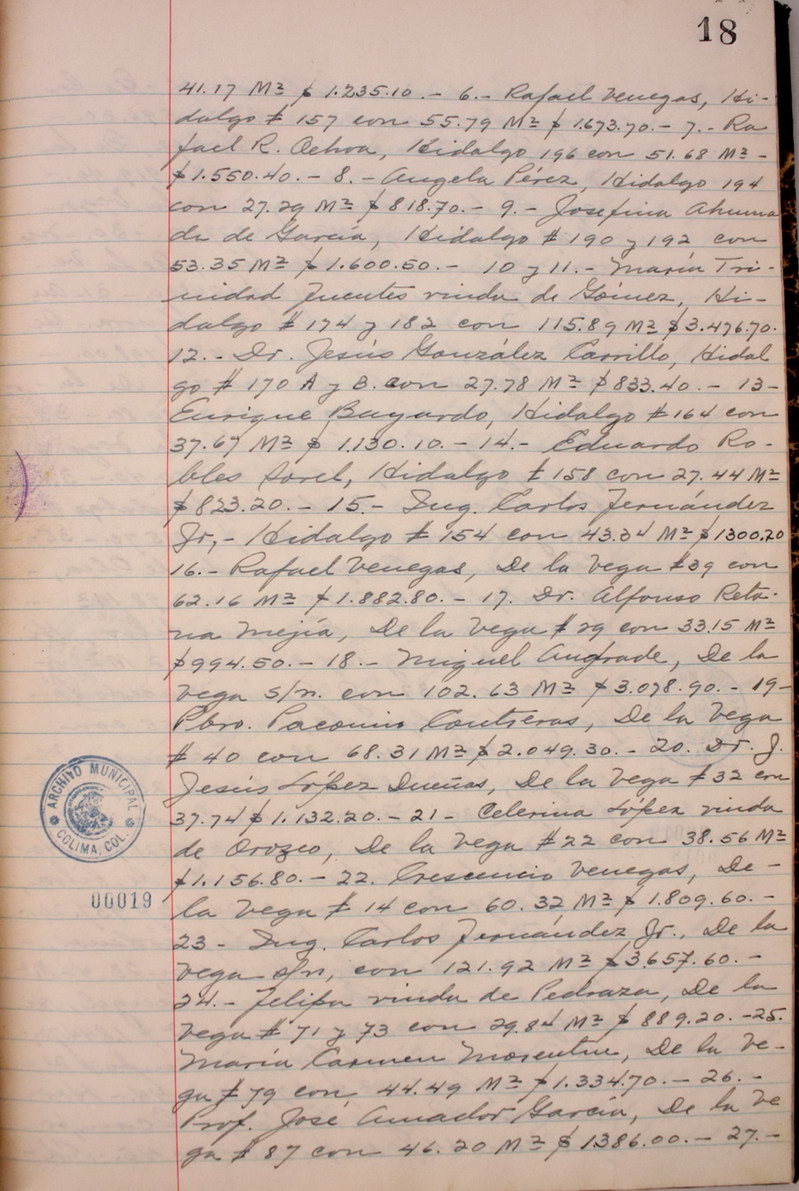 18
41.17 M² $ 1.235.10.- 6.- Rafael Venegas, Hi-
dalgo # 157 con 55.79 M² $ 1.673.70.- 7.- Ra
fael R. Ochoa, Hidalgo 196 con 51.68 M² -
$1.550.40.- 8.- Angela Pérez, Hidalgo 194
con 27.29 M² $ 818.70.- 9.- Josefina Ahuma
da de García, Hidalgo # 190 y 192 con
53.35 M² $ 1.600.50.- 10 y 11.- María Tri-
nidad Fuentes viuda de Gómez, Hi-
dalgo # 174 y 182 con 115.89 M² $3.476.70.
12.- Dr. Jesús González Carrillo, Hidal
go # 170 A y B. con 27.78 M² $833.40.- 13-
Enrique Bayardo, Hidalgo # 164 con
37.67 M² $ 1.130.10.- 14.- Eduardo Ro-
bles Sorel, Hidalgo # 158 con 27.44 M²
$823.20.- 15.- Ing. Carlos Fernández
Jr,- Hidalgo # 154 con 43.34 M² $1300.20
16.- Rafael Venegas, De la Vega #39 con
62.16 M² $ 1.882.80.- 17. Dr. Alfonso Reta-
na Mejía, De la Vega # 29 con 33.15 M²
$994.50.- 18.- Miguel Andrade, De la
Vega s/n. con 102.63 M² $ 3.078.90.- 19-
Pbro. Pacomio Contreras, De la Vega
# 40 con 68.31 M² $ 2.049.30.- 20. Dr. J.
Jesús López Dueñas, De la Vega # 32 con
37.74 $ 1.132.20.- 21- Celerina López viuda
de Orozco, De la Vega # 22 con 38.56 M²
$1.156.80.- 22. Crescencio Venegas, De -
la Vega # 14 con 60.32 M² $ 1.809.60.-
23- Ing. Carlos Fernández Jr., De la
Vega s/n, con 121.92 M² $3.657.60.-
24.- Felipa viuda de Pedraza, De la
Vega # 71 y 73 con 29.84 M² $ 889.20.-25.
María Carmen Morentin, De la Ve-
ga # 79 con 44.49 M² $ 1.334.70.- 26.-
Prof. José Amador García, De la Ve
ga # 87 con 46.20 M² $ 1386.00.- 27.-
ARCHIVO MUNICIPAL
COLIMA, COL.
00019